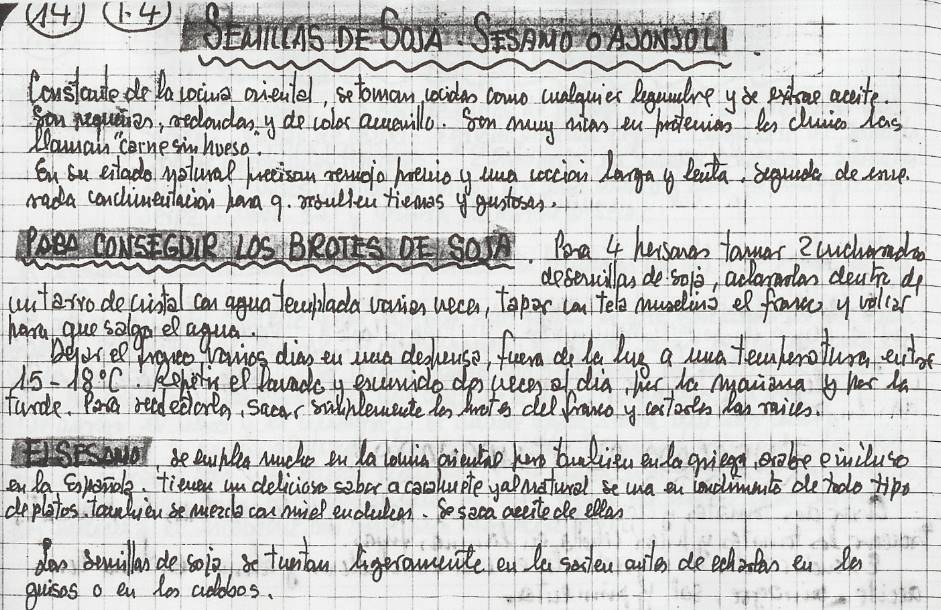 (14) (1-4)
SEMILLAS DE SOJA - SESAMO O AJONJOLI
Constante de la cocina oriental, se toman cocidas como cualquier legumbre y se extrae aceite.
Son pequeñas, redondas y de color amarillo. Son muy ricas en proteinas los chinos las
llaman "carne sin hueso".
En su estado natural precisan remojo previo y una cocción larga y lenta, seguida de esme-
rada condimentación para q. resulten tiernas y gustosas.
PARA CONSEGUIR LOS BROTES DE SOJA. Para 4 personas tomar 2 cucharadas
de semillas de soja, aclararlas dentro de
un tarro de cristal con agua templada varias veces, tapar con tela muselina el frasco y volcar
para que salga el agua.
Dejar el frasco varios dias en una despensa, fuera de la luz a una temperatura entre
15-18°C. Repetir el lavado y escurrido dos veces al dia, por la mañana y por la
tarde. Para recolectarlos, sacar simplemente los brotes del frasco y cortarles las raices.
El SESAMO se emplea mucho en la cocina oriental pero tambien en la griega, arabe e incluso
en la Española. tienen un delicioso sabor a cacahuete y al natural se usa en condimento de todo tipo
de platos. tambien se mezcla con miel en dulces. Se saca aceite de ellas
Las semillas de soja se tuestan ligeramente en la sarten antes de echarlas en los
guisos o en los adobos.